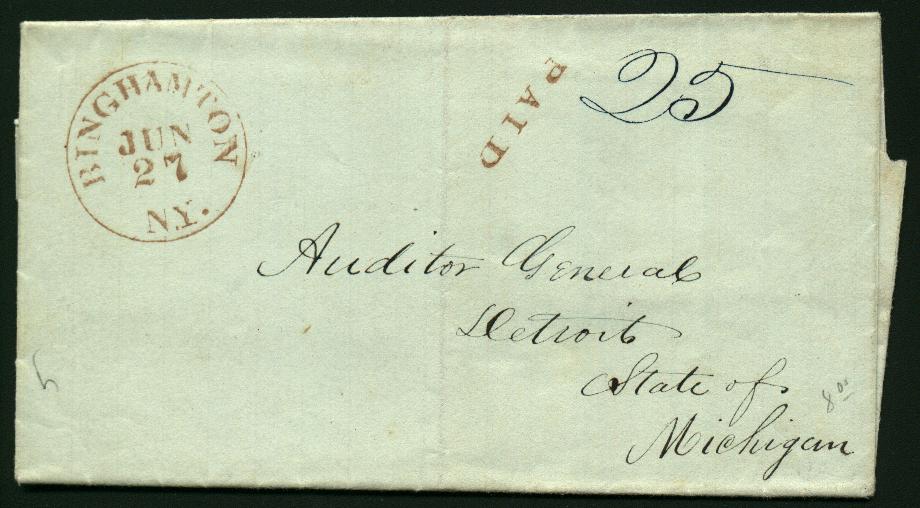 BINGHAMTON
JUN
27
N.Y.
PAID
25
Auditor General
Detroit
State of
Michigan
8 00
5